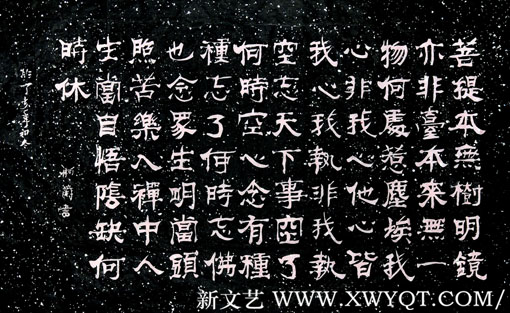 菩提本無樹明鏡
亦非臺本來無一
物何處惹塵埃我
心非我心他心皆
我心我執非我執
空忘天下事空了
何時空心念有種
種忘了何時忘佛
也念眾生明當頭
照苦樂入禪中人
生當自悟陰缺何
時休
新文艺 WWW.XWYQT.COM/